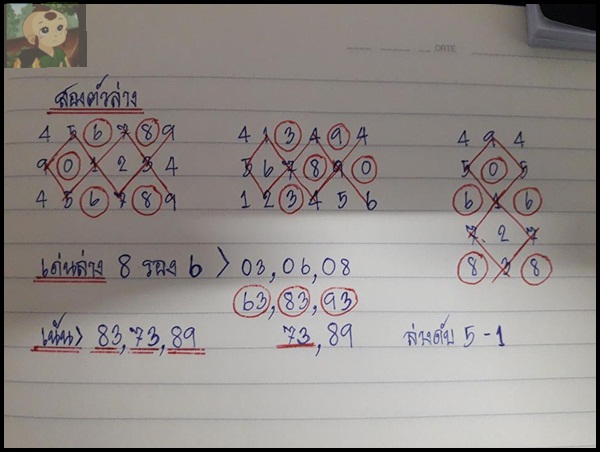 DATE
สองตัวล่าง
4 5 6 7 8 9
9 0 1 2 3 4
4 5 6 7 8 9
4 1 3 4 9 4
5 6 7 8 9 0
1 2 3 4 5 6
4 9 4
5 0 5
6 1 6
7 2 7
8 3 8
เด่นล่าง 8 รอง 6 > 03, 06, 08
63, 83, 93
เน้น > 83, 73, 89
73, 89
ล่างดับ 5 - 1